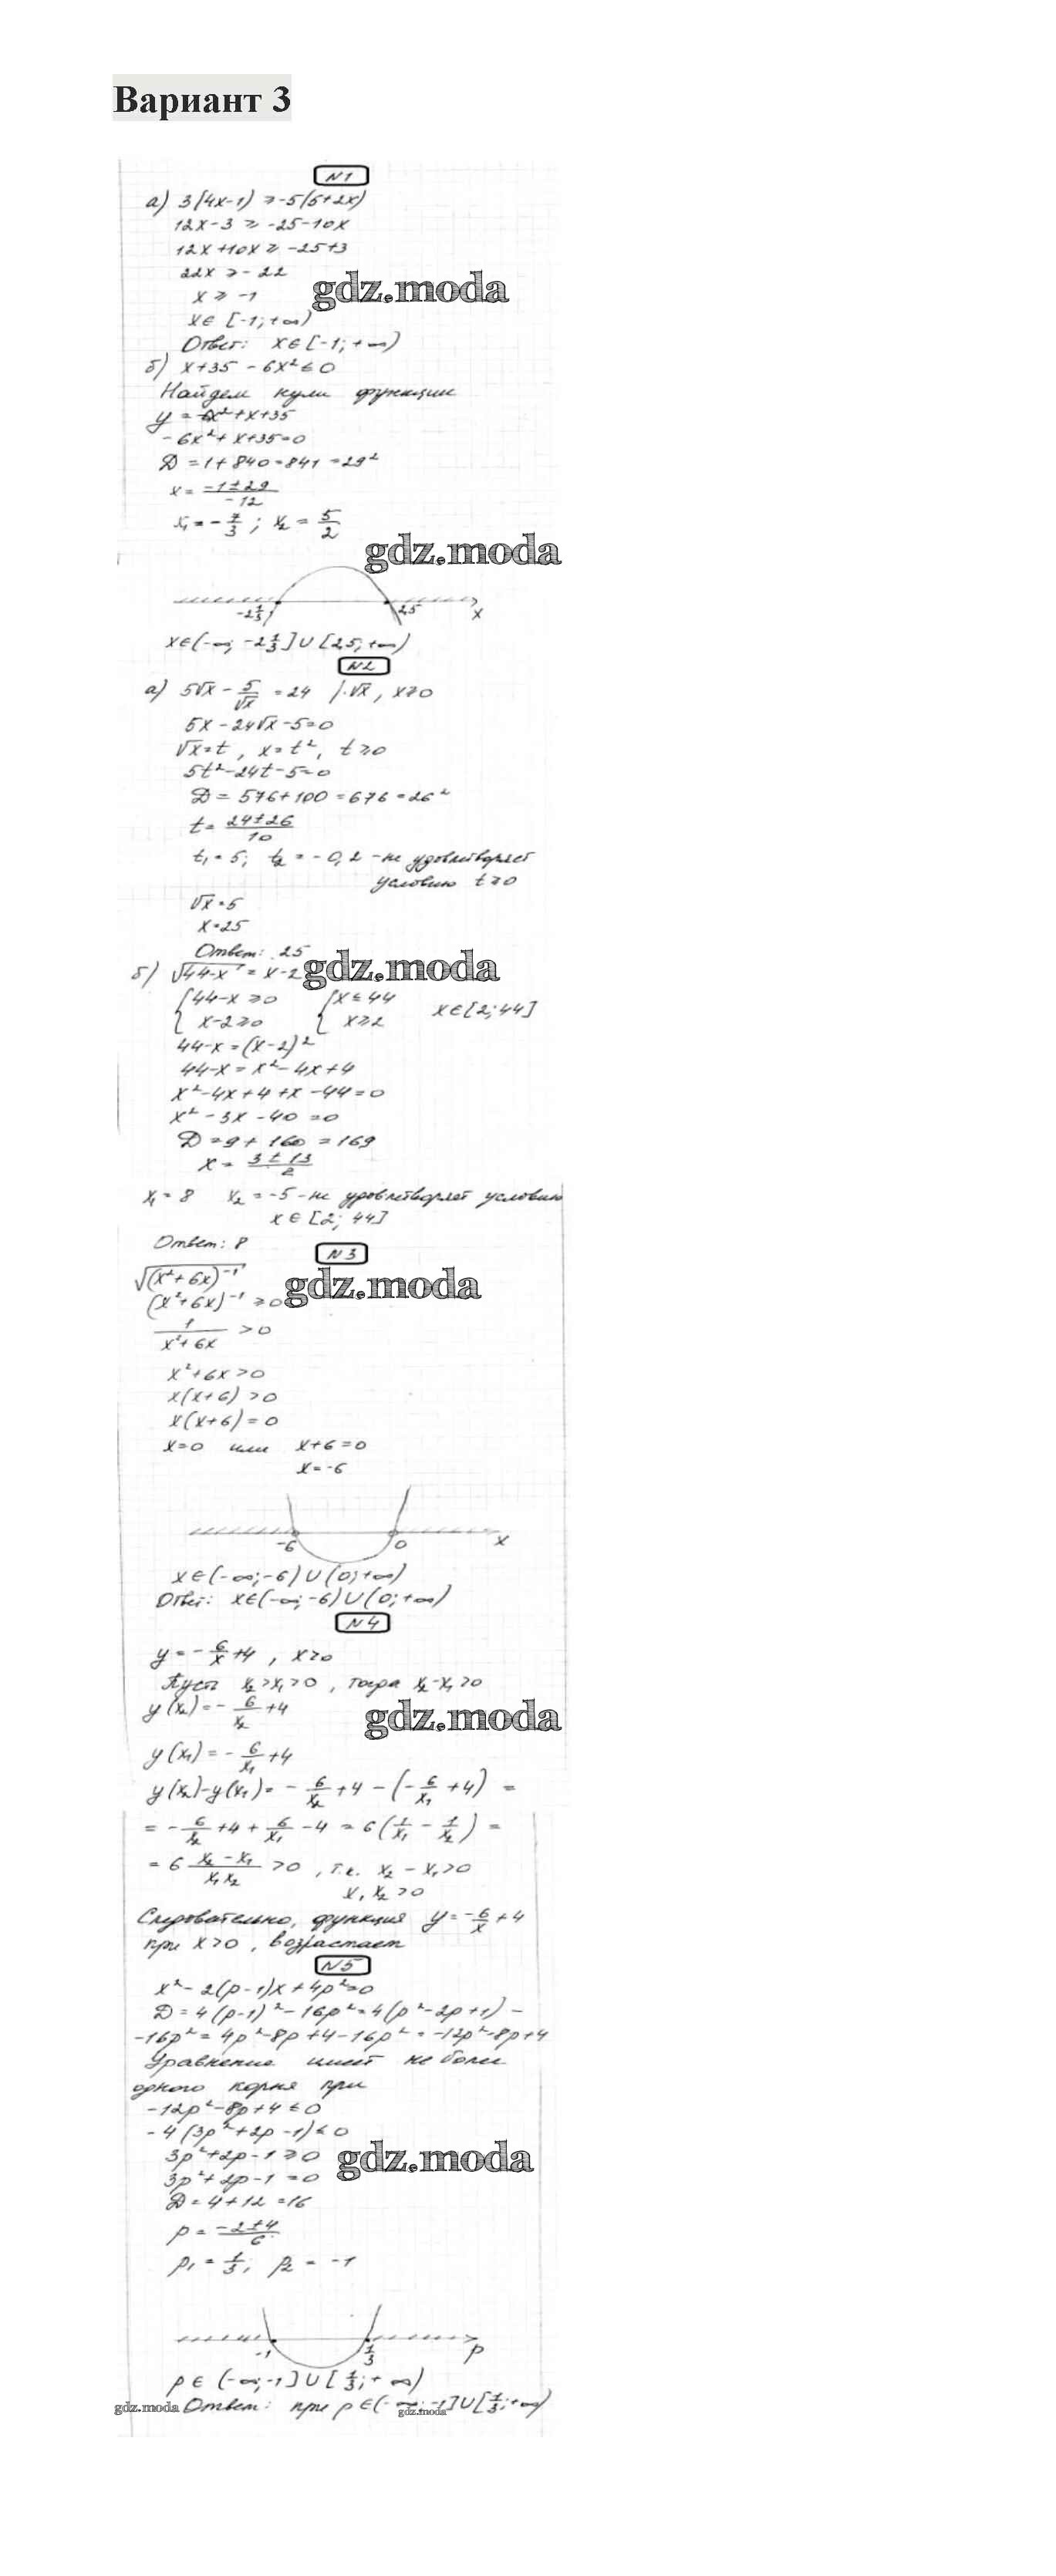 Вариант 3
N1
а) 3(4x-1) ≥ -5(5+2x)
12x-3 ≥ -25-10x
12x+10x ≥ -25+3
22x ≥ -22
gdz.moda
x ≥ -1
x∈[-1;+∞)
Ответ: x∈[-1;+∞)
б) x+35-6x²≤0
Найдем нули функции
y=-6x²+x+35
-6x²+x+35=0
D=1+840=841=29²
x=(-1±29)/(-12)
x₁=-7/3; x₂=5/2
gdz.moda
-2 1/3 2,5 x
x∈(-∞; -2 1/3]∪[2,5;+∞)
N2
а) 5√x - 5/√x = 24 |·√x, x>0
5x-24√x-5=0
√x=t, x=t², t≥0
5t²-24t-5=0
D=576+100=676=26²
t=(24±26)/10
t₁=5; t₂=-0,2 - не удовлетворяет
условию t≥0
√x=5
x=25
Ответ: 25
б) √(44-x) = x-2 gdz.moda
{44-x≥0 {x≤44
{x-2≥0 {x≥2 x∈[2;44]
44-x=(x-2)²
44-x=x²-4x+4
x²-4x+4+x-44=0
x²-3x-40=0
D=9+160=169
x=(3±13)/2
x₁=8 x₂=-5 - не удовлетворяет условию
x∈[2; 44]
Ответ: 8
N3
√((x²+6x)⁻¹)
(x²+6x)⁻¹≥0 gdz.moda
1/(x²+6x) >0
x²+6x>0
x(x+6)>0
x(x+6)=0
x=0 или x+6=0
x=-6
-6 0 x
x∈(-∞;-6)∪(0;+∞)
Ответ: x∈(-∞;-6)∪(0;+∞)
N4
y=-6/x+4, x>0
Пусть x₂>x₁>0, тогда x₂-x₁>0
y(x₂)=-6/x₂+4
gdz.moda
y(x₁)=-6/x₁+4
y(x₂)-y(x₁)=-6/x₂+4-(-6/x₁+4)=
=-6/x₂+4+6/x₁-4=6(1/x₁-1/x₂)=
=6 (x₂-x₁)/(x₁x₂)>0, т.к. x₂-x₁>0
x₁x₂>0
Следовательно, функция y=-6/x+4
при x>0, возрастает
N5
x²-2(p-1)x+4p²=0
D=4(p-1)²-16p²=4(p²-2p+1)-
-16p²=4p²-8p+4-16p²=-12p²-8p+4
Уравнение имеет не более
одного корня при
-12p²-8p+4≤0
-4(3p²+2p-1)≤0
3p²+2p-1≥0
gdz.moda
3p²+2p-1=0
D=4+12=16
p=(-2±4)/6
p₁=1/3; p₂=-1
-1 1/3 p
p∈(-∞;-1]∪[1/3;+∞)
gdz.moda Ответ: при p∈(-∞;-1]∪[1/3;+∞)
gdz.moda